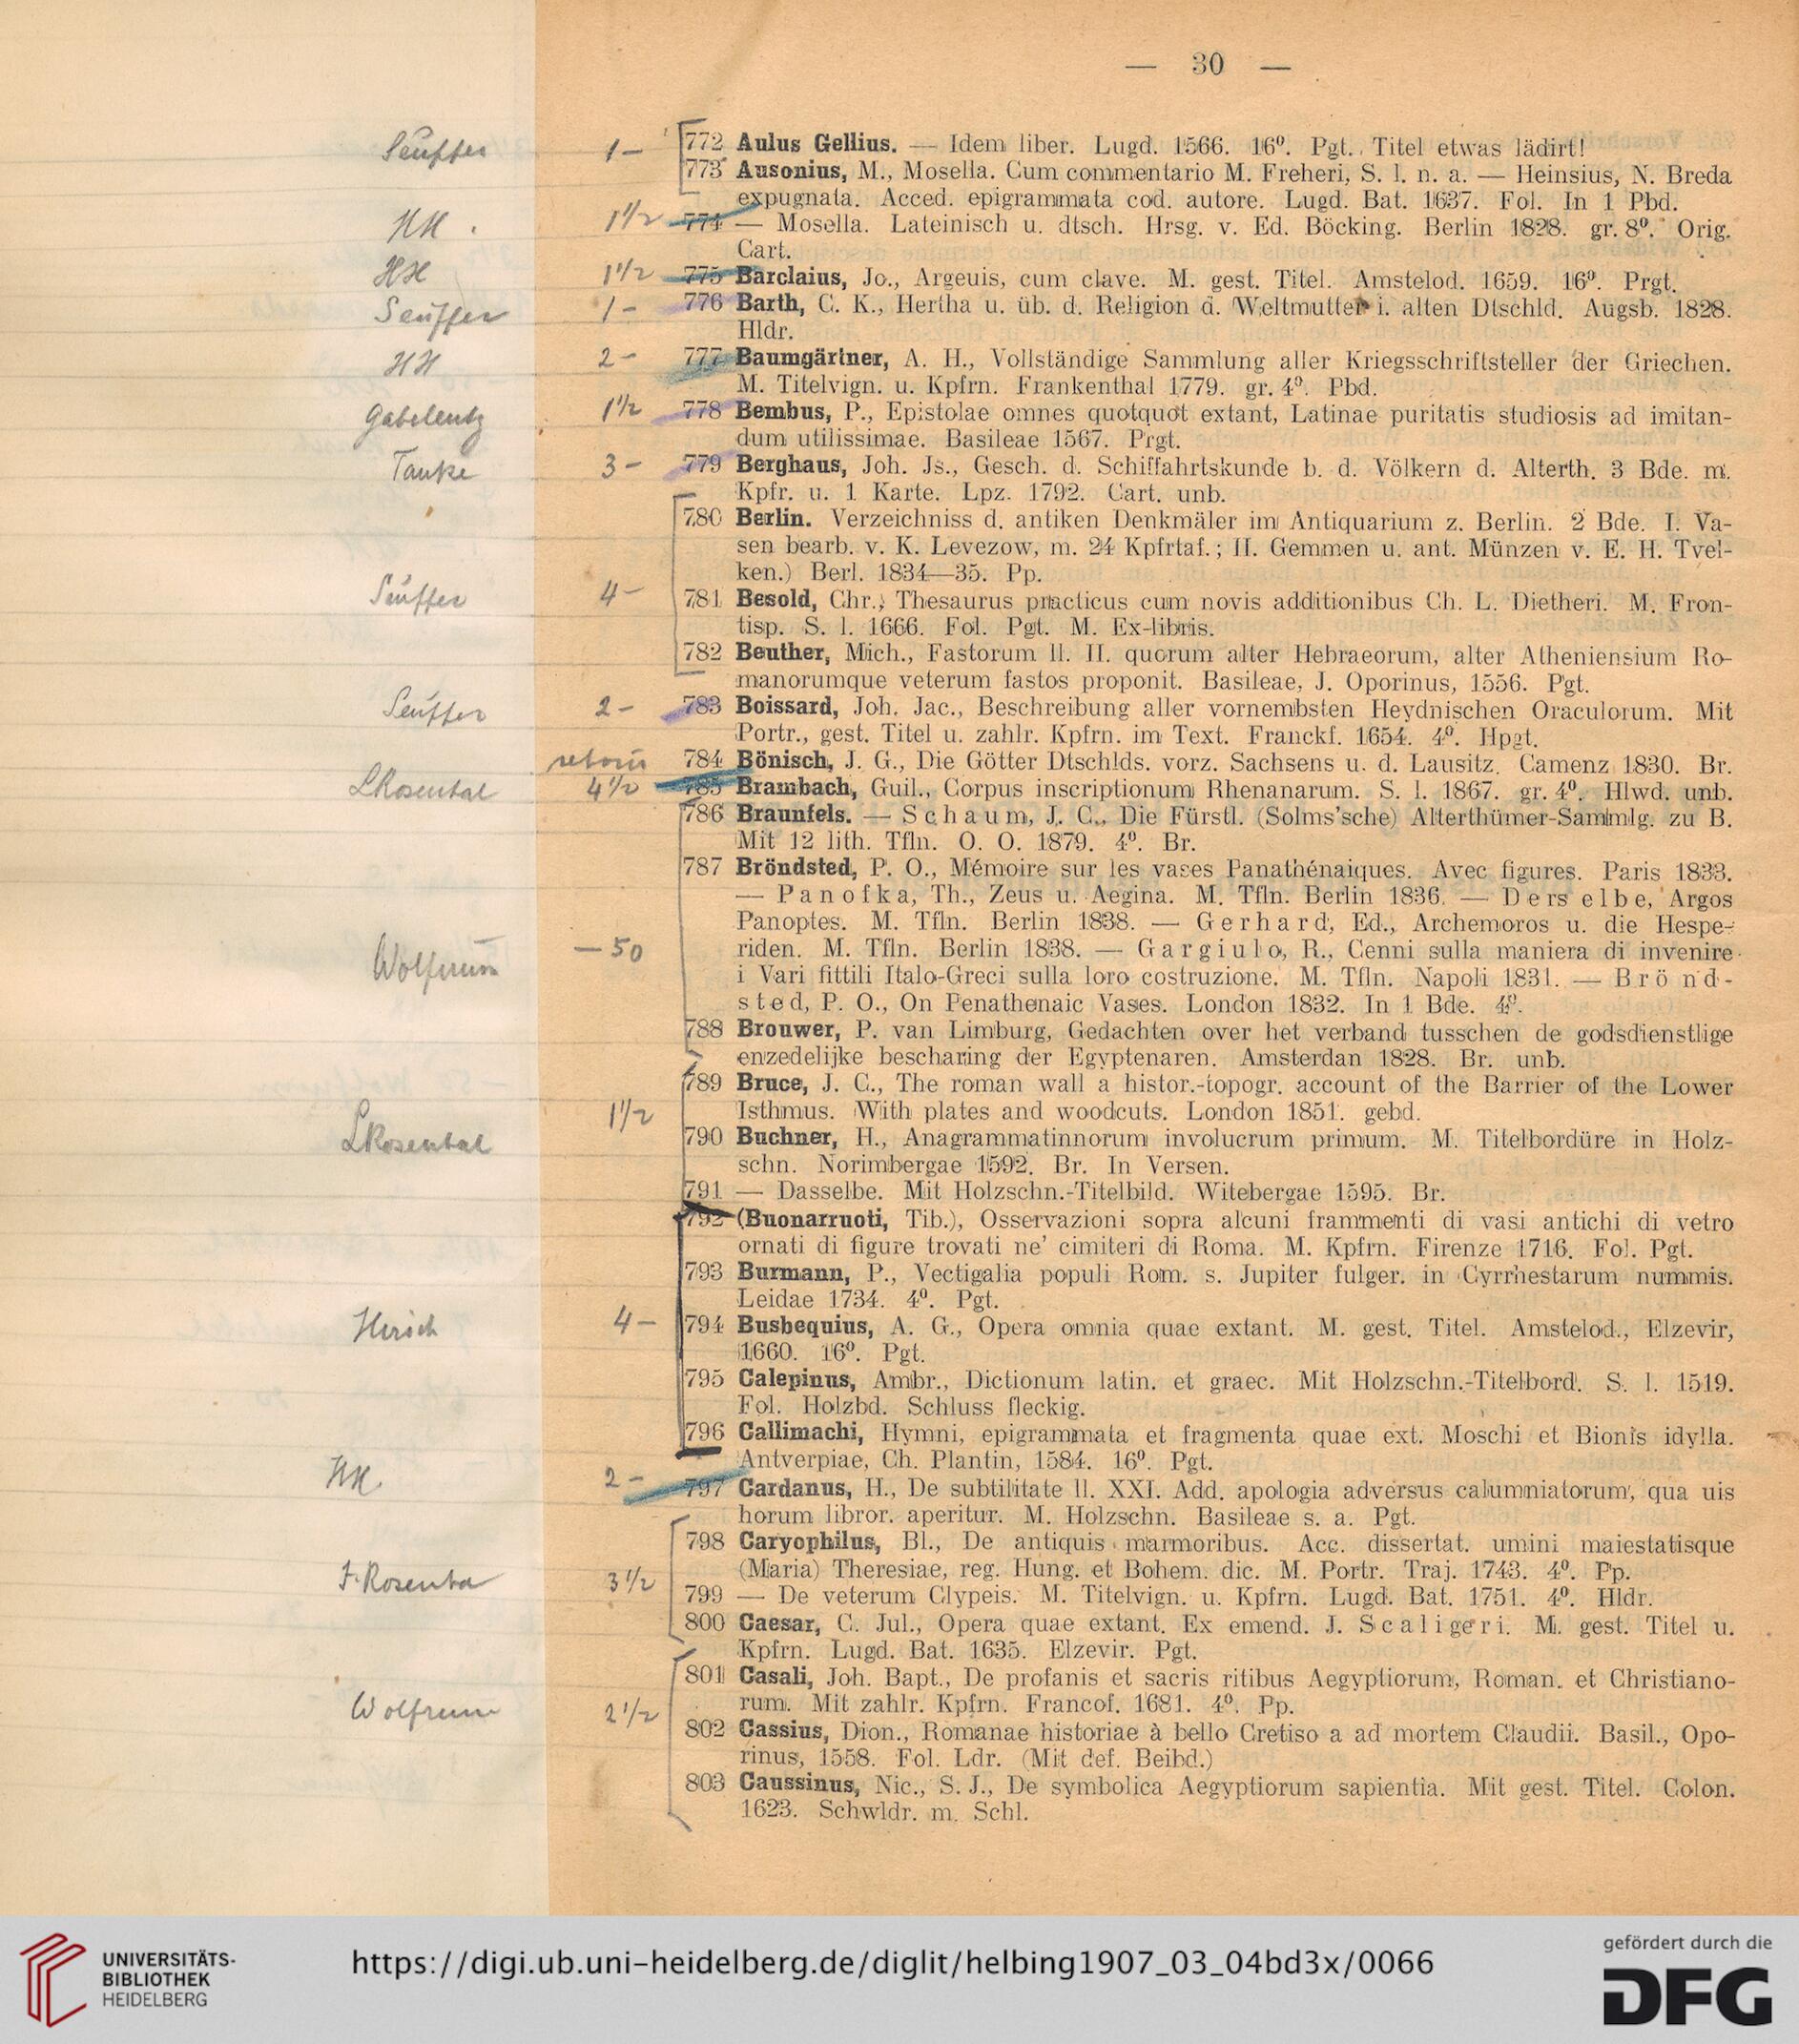 — 30 —
Seuffer 1 – 772 Aulus Gellius. — Idem liber. Lugd. 1566. 16⁰. Pgt. Titel etwas lädirt!
773 Ausonius, M., Mosella. Cum commentario M. Freheri, S. l. n. a. — Heinsius, N. Breda
expugnata. Acced. epigrammata cod. autore. Lugd. Bat. 1637. Fol. In 1 Pbd.
HH. 1½ 774 — Mosella. Lateinisch u. dtsch. Hrsg. v. Ed. Böcking. Berlin 1828. gr. 8⁰. Orig.
Cart.
HH 1½ 775 Barclaius, Jo., Argeuis, cum clave. M. gest. Titel. Amstelod. 1659. 16⁰. Prgt.
Seuffer 1 – 776 Barth, C. K., Hertha u. üb. d. Religion d. Weltmutter i. alten Dtschld. Augsb. 1828.
Hldr.
HH 2 – 777 Baumgärtner, A. H., Vollständige Sammlung aller Kriegsschriftsteller der Griechen.
M. Titelvign. u. Kpfrn. Frankenthal 1779. gr. 4⁰. Pbd.
Gabelentz 1½ 778 Bembus, P., Epistolae omnes quotquot extant, Latinae puritatis studiosis ad imitan-
dum utilissimae. Basileae 1567. Prgt.
Tauke 3 – 779 Berghaus, Joh. Js., Gesch. d. Schiffahrtskunde b. d. Völkern d. Alterth. 3 Bde. m.
Kpfr. u. 1 Karte. Lpz. 1792. Cart. unb.
780 Berlin. Verzeichniss d. antiken Denkmäler im Antiquarium z. Berlin. 2 Bde. I. Va-
sen bearb. v. K. Levezow, m. 24 Kpfrtaf.; II. Gemmen u. ant. Münzen v. E. H. Tvel-
ken.) Berl. 1834—35. Pp.
Seuffer 4 – 781 Besold, Chr., Thesaurus practicus cum novis additionibus Ch. L. Dietheri. M. Fron-
tisp. S. l. 1666. Fol. Pgt. M. Ex-libris.
782 Beuther, Mich., Fastorum ll. II. quorum alter Hebraeorum, alter Atheniensium Ro-
manorumque veterum fastos proponit. Basileae, J. Oporinus, 1556. Pgt.
Seuffer 2 – 783 Boissard, Joh. Jac., Beschreibung aller vornembsten Heydnischen Oraculorum. Mit
Portr., gest. Titel u. zahlr. Kpfrn. im Text. Franckf. 1654. 4⁰. Hpgt.
retour 784 Bönisch, J. G., Die Götter Dtschlds. vorz. Sachsens u. d. Lausitz. Camenz 1830. Br.
LRosental 4½ 785 Brambach, Guil., Corpus inscriptionum Rhenanarum. S. l. 1867. gr. 4⁰. Hlwd. unb.
786 Braunfels. — Schaum, J. C., Die Fürstl. (Solms'sche) Alterthümer-Sammlg. zu B.
Mit 12 lith. Tfln. O. O. 1879. 4⁰. Br.
787 Bröndsted, P. O., Mémoire sur les vases Panathénaiques. Avec figures. Paris 1833.
— Panofka, Th., Zeus u. Aegina. M. Tfln. Berlin 1836. — Derselbe, Argos
Panoptes. M. Tfln. Berlin 1838. — Gerhard, Ed., Archemoros u. die Hespe-
Wolfrum – 50 riden. M. Tfln. Berlin 1838. — Gargiulo, R., Cenni sulla maniera di invenire
i Vari fittili Italo-Greci sulla loro costruzione. M. Tfln. Napoli 1831. — Brönd-
sted, P. O., On Penathenaic Vases. London 1832. In 1 Bde. 4⁰.
788 Brouwer, P. van Limburg, Gedachten over het verband tusschen de godsdienstlige
enzedelijke bescharing der Egyptenaren. Amsterdan 1828. Br. unb.
789 Bruce, J. C., The roman wall a histor.-topogr. account of the Barrier of the Lower
1½ Isthmus. With plates and woodcuts. London 1851. gebd.
LRosental 790 Buchner, H., Anagrammatinnorum involucrum primum. M. Titelbordüre in Holz-
schn. Norimbergae 1592. Br. In Versen.
791 — Dasselbe. Mit Holzschn.-Titelbild. Witebergae 1595. Br.
792 (Buonarruoti, Tib.), Osservazioni sopra alcuni frammenti di vasi antichi di vetro
ornati di figure trovati ne' cimiteri di Roma. M. Kpfrn. Firenze 1716. Fol. Pgt.
793 Burmann, P., Vectigalia populi Rom. s. Jupiter fulger. in Cyrrhestarum nummis.
Leidae 1734. 4⁰. Pgt.
Hirsch 4 – 794 Busbequius, A. G., Opera omnia quae extant. M. gest. Titel. Amstelod., Elzevir,
1660. 16⁰. Pgt.
795 Calepinus, Ambr., Dictionum latin. et graec. Mit Holzschn.-Titelbord. S. l. 1519.
Fol. Holzbd. Schluss fleckig.
796 Callimachi, Hymni, epigrammata et fragmenta quae ext. Moschi et Bionis idylla.
Antverpiae, Ch. Plantin, 1584. 16⁰. Pgt.
HH. 2 – 797 Cardanus, H., De subtilitate ll. XXI. Add. apologia adversus calumniatorum, qua uis
horum libror. aperitur. M. Holzschn. Basileae s. a. Pgt.
798 Caryophilus, Bl., De antiquis marmoribus. Acc. dissertat. umini maiestatisque
(Maria) Theresiae, reg. Hung. et Bohem. dic. M. Portr. Traj. 1743. 4⁰. Pp.
J. Rosental 3½ 799 — De veterum Clypeis. M. Titelvign. u. Kpfrn. Lugd. Bat. 1751. 4⁰. Hldr.
800 Caesar, C. Jul., Opera quae extant. Ex emend. J. Scaligeri. M. gest. Titel u.
Kpfrn. Lugd. Bat. 1635. Elzevir. Pgt.
801 Casali, Joh. Bapt., De profanis et sacris ritibus Aegyptiorum, Roman. et Christiano-
rum. Mit zahlr. Kpfrn. Francof. 1681. 4⁰. Pp.
Wolfrum 2½ 802 Cassius, Dion., Romanae historiae à bello Cretiso a ad mortem Claudii. Basil., Opo-
rinus, 1558. Fol. Ldr. (Mit def. Beibd.)
803 Caussinus, Nic., S. J., De symbolica Aegyptiorum sapientia. Mit gest. Titel. Colon.
1623. Schwldr. m. Schl.
UNIVERSITÄTS-
BIBLIOTHEK
HEIDELBERG
https://digi.ub.uni-heidelberg.de/diglit/helbing1907_03_04bd3x/0066
gefördert durch die
DFG